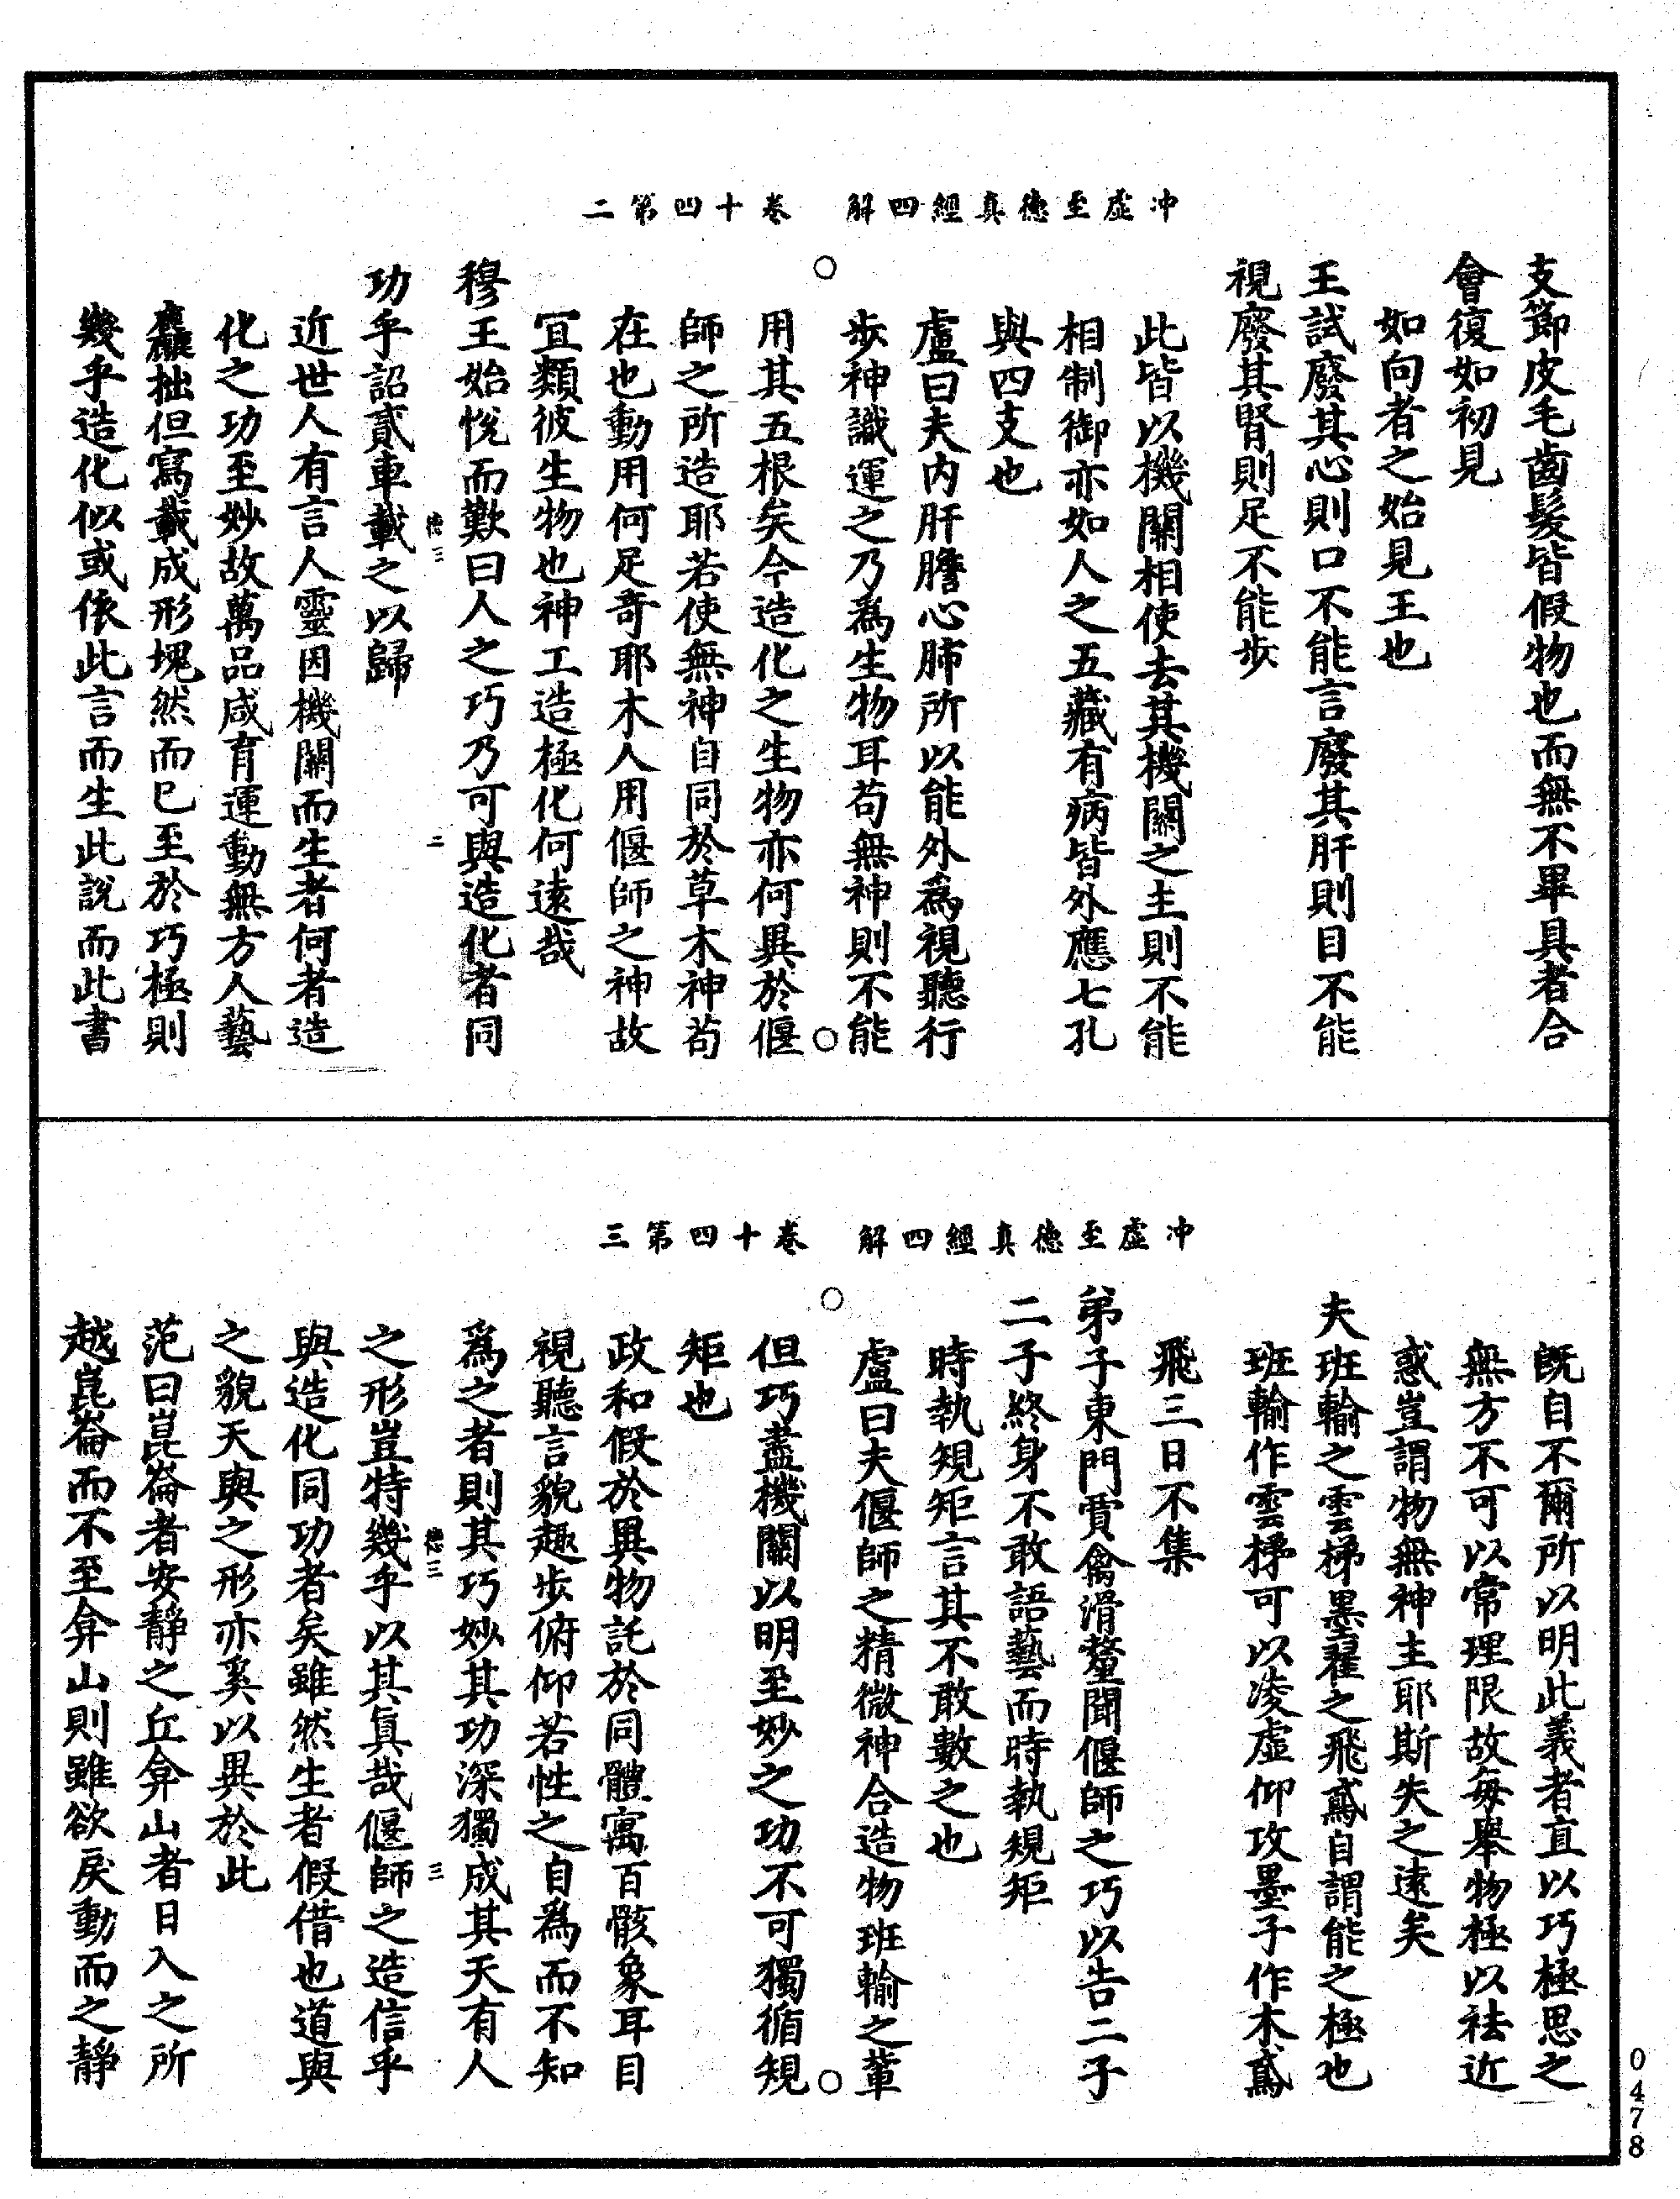 沖虛至德真經四解　卷十四第二
支節皮毛齒髮皆假物也而無不畢具者合
會復如初見
如向者之始見王也
王試廢其心則口不能言廢其肝則目不能
視廢其腎則足不能步
此皆以機關相使去其機關之主則不能
相制御亦如人之五藏有病皆外應七孔
與四支也
盧曰夫內肝膽心肺所以能外為視聽行
步神識運之乃為生物耳苟無神則不能
用其五根矣今造化之生物亦何異於偃
師之所造耶若使無神自同於草木神苟
在也動用何足奇耶木人用偃師之神故
宜類彼生物也神工造極化何遠哉
穆王始悅而歎曰人之巧乃可與造化者同
德三　二
功乎詔貳車載之以歸
近世人有言人靈因機關而生者何者造
化之功至妙故萬品咸育運動無方人藝
麤拙但寫載成形塊然而已至於巧極則
幾乎造化似或依此言而生此說而此書
沖虛至德真經四解　卷十四第三
既自不爾所以明此義者直以巧極思之
無方不可以常理限故每舉物極以祛近
惑豈謂物無神主耶斯失之遠矣
夫班輸之雲梯墨翟之飛鳶自謂能之極也
班輸作雲梯可以凌虛仰攻墨子作木鳶
飛三日不集
弟子東門賈禽滑釐聞偃師之巧以告二子
二子終身不敢語藝而時執規矩
時執規矩言其不敢數之也
盧曰夫偃師之精微神合造物班輸之輩
但巧盡機關以明至妙之功不可獨循規
矩也
政和假於異物託於同體寓百骸象耳目
視聽言貌趣步俯仰若性之自為而不知
為之者則其巧妙其功深獨成其天有人
德三　三
之形豈特幾乎以其真哉偃師之造信乎
與造化同功者矣雖然生者假借也道與
之貌天與之形亦奚以異於此
范曰崑崙者安靜之丘弇山者日入之所
越崑崙而不至弇山則雖欲戾動而之靜
0478